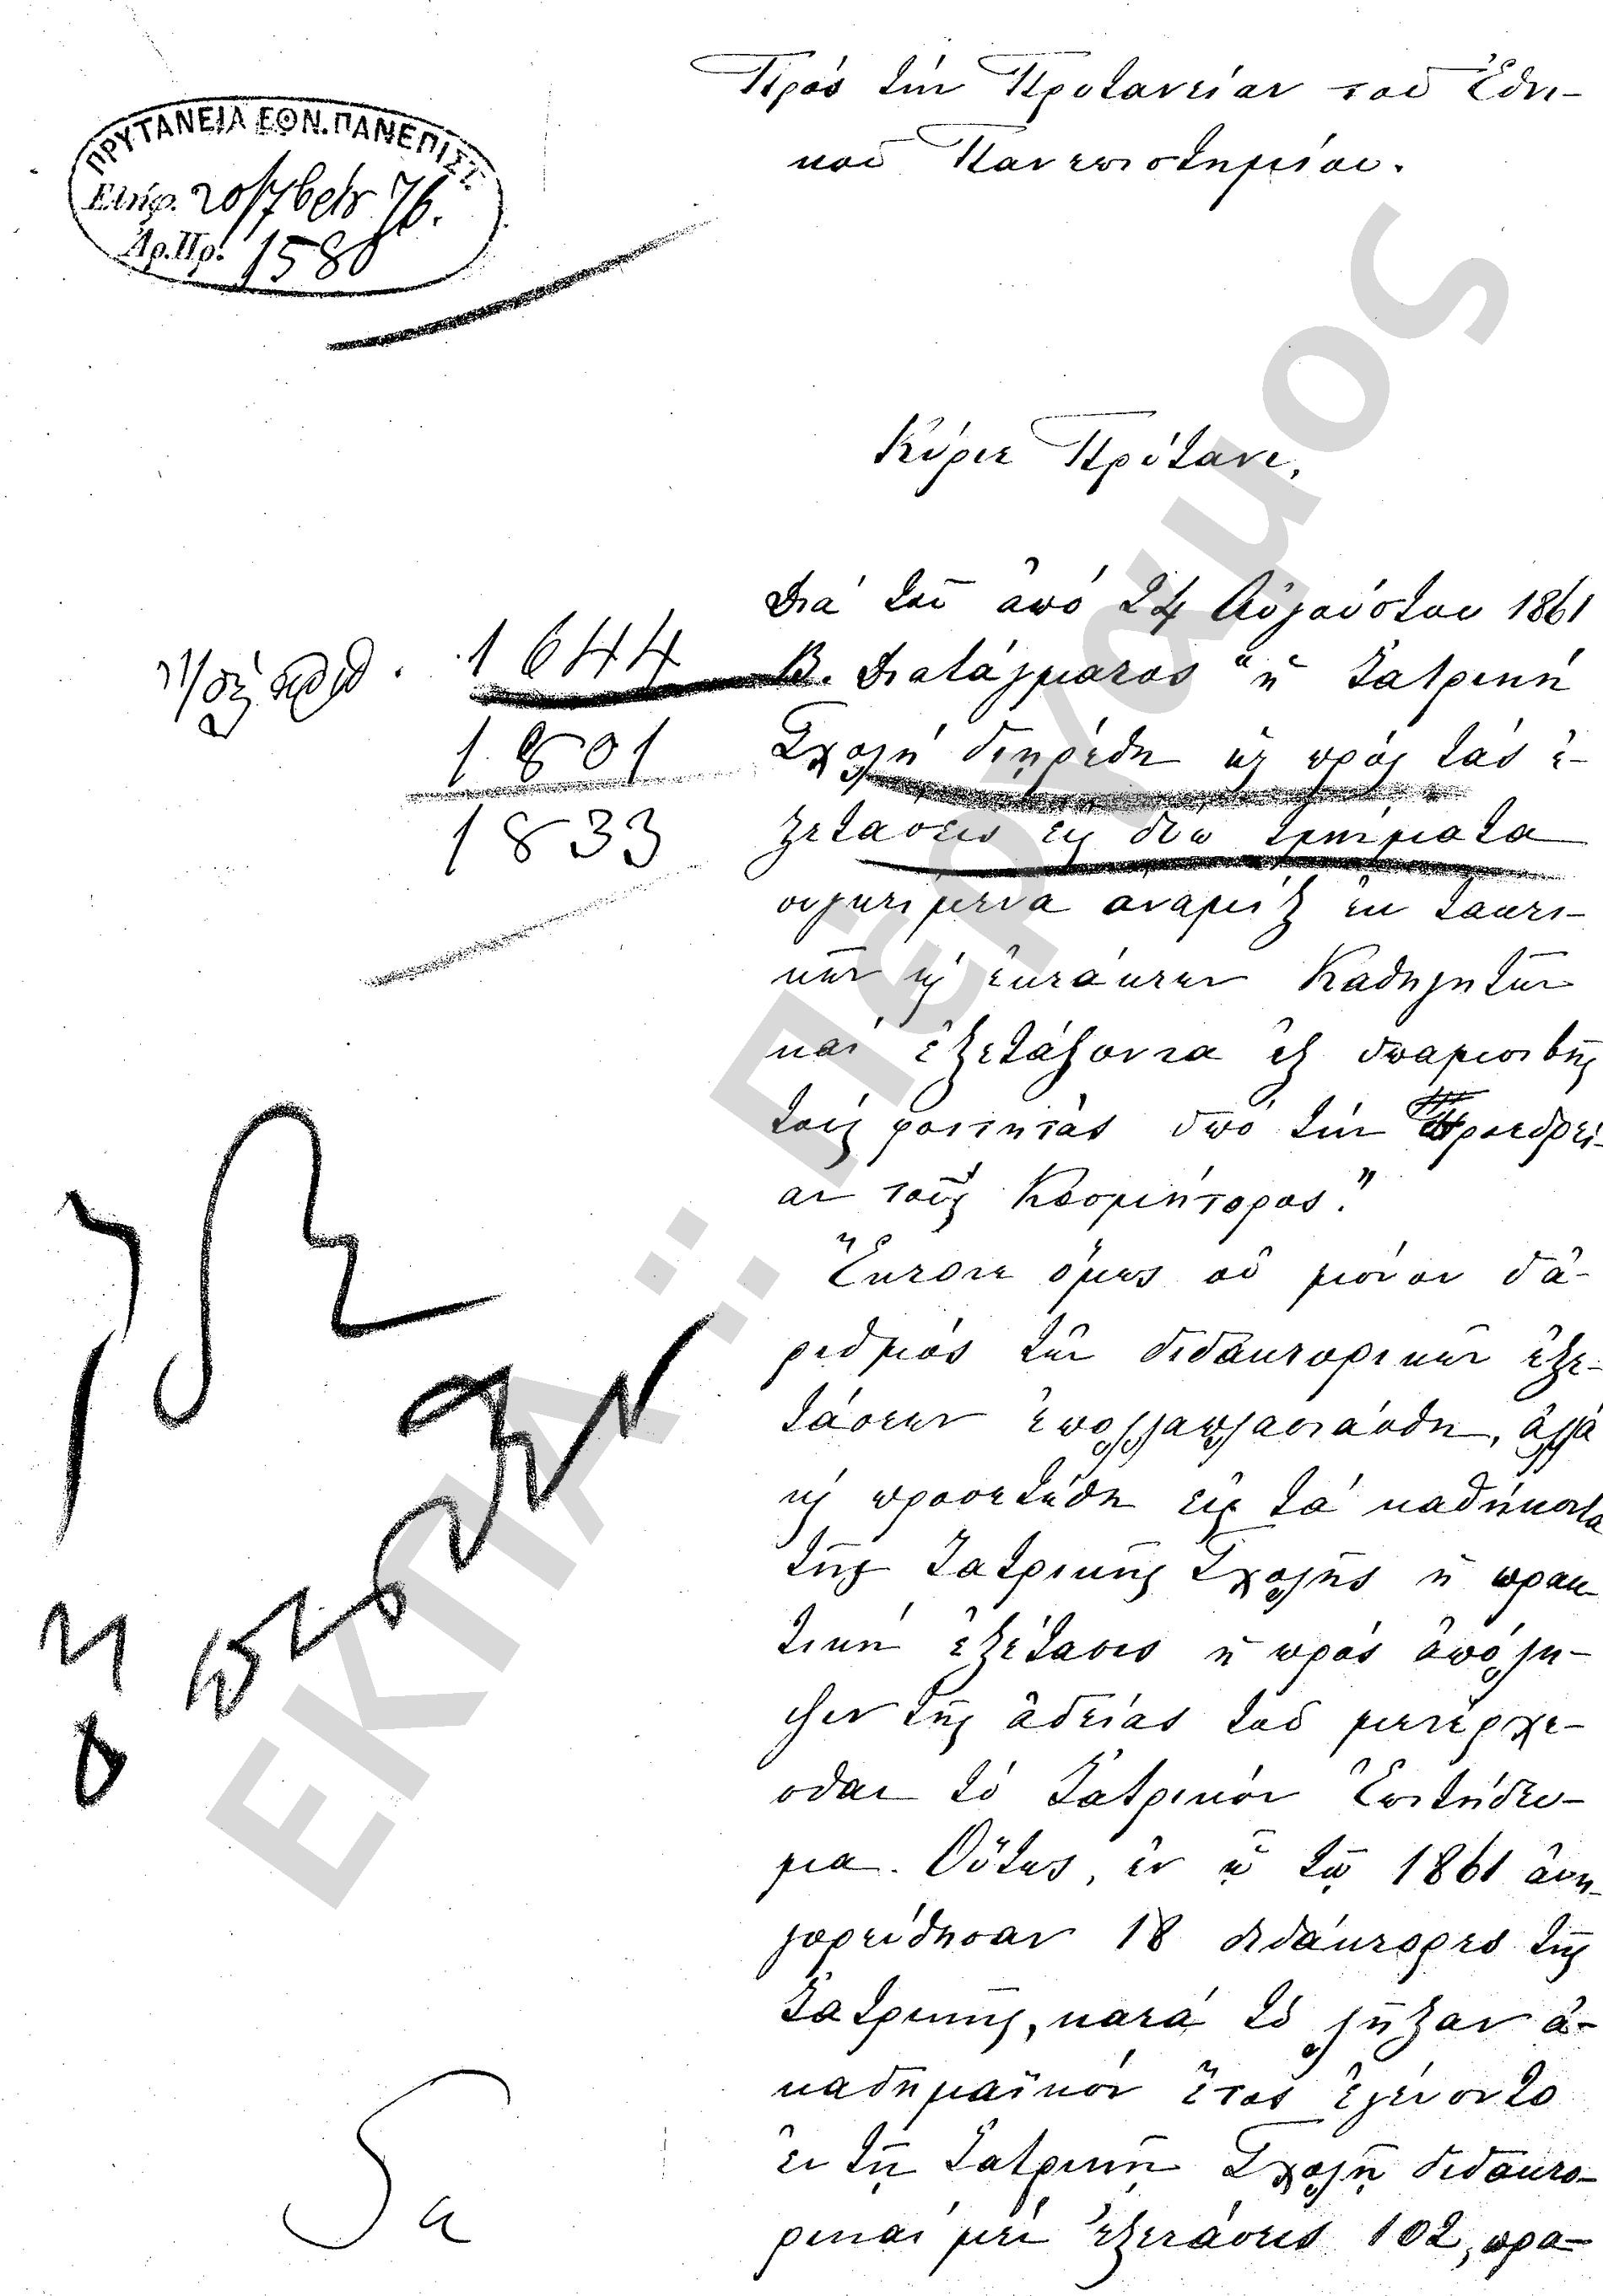 Πρὸς τὴν Πρυτανείαν τοῦ Ἐθνι-
κοῦ Πανεπιστημίου.
ΠΡΥΤΑΝΕΙΑ ΕΘΝ. ΠΑΝΕΠΙΣΤ.
Ἐλήφ. 20/7βρίου 76.
Ἀρ. Πρ. 1580
Κύριε Πρύτανι,
Διὰ τοῦ ἀπὸ 24 Αὐγούστου 1861
1644
Β. Διατάγματος "ἡ Ἰατρικὴ
1801
Σχολὴ διῃρέθη ὡς πρὸς τὰς ἐ-
1833
ξετάσεις εἰς δύω τμήματα
συγκείμενα ἀναμεὶξ ἐκ τακτι-
κῶν κỳ ἐκτάκτων Καθηγητῶν
καὶ ἐξετάζοντα ἐξ ὑπαμοιβῆς
τοὺς φοιτητὰς ὑπὸ τὴν Προεδρεί-
αν τοῦ Κοσμήτορος."
Ἔκτοτε ὅμως οὐ μόνον ὁ ἀ-
ριθμὸς τῶν διδακτορικῶν ἐξε-
τάσεων ἐπολλαπλασιάσθη, ἀλλὰ
κỳ προσετέθη εἰς τὰ καθήκοντα
τῆς Ἰατρικῆς Σχολῆς ἡ πρακ
τικὴ ἐξέτασις ἡ πρὸς ἀπόλη-
ψιν τῆς ἀδείας τοῦ μετέρχε-
σθαι τὸ Ἰατρικὸν Ἐπιτήδευ-
μα. Οὕτως, ἐν ᾧ τῷ 1861 ἀνη-
γορεύθησαν 18 διδάκτορες τῆς
Ἰατρικῆς, κατὰ τὸ λῆξαν ἀ-
καδημαϊκὸν ἔτος ἐγένοντο
ἐν τῇ Ἰατρικῇ Σχολῇ διδακτο-
ρικαὶ μὲν ἐξετάσεις 102, πρα-
ΕΚΠΑ :: Πέργαμος